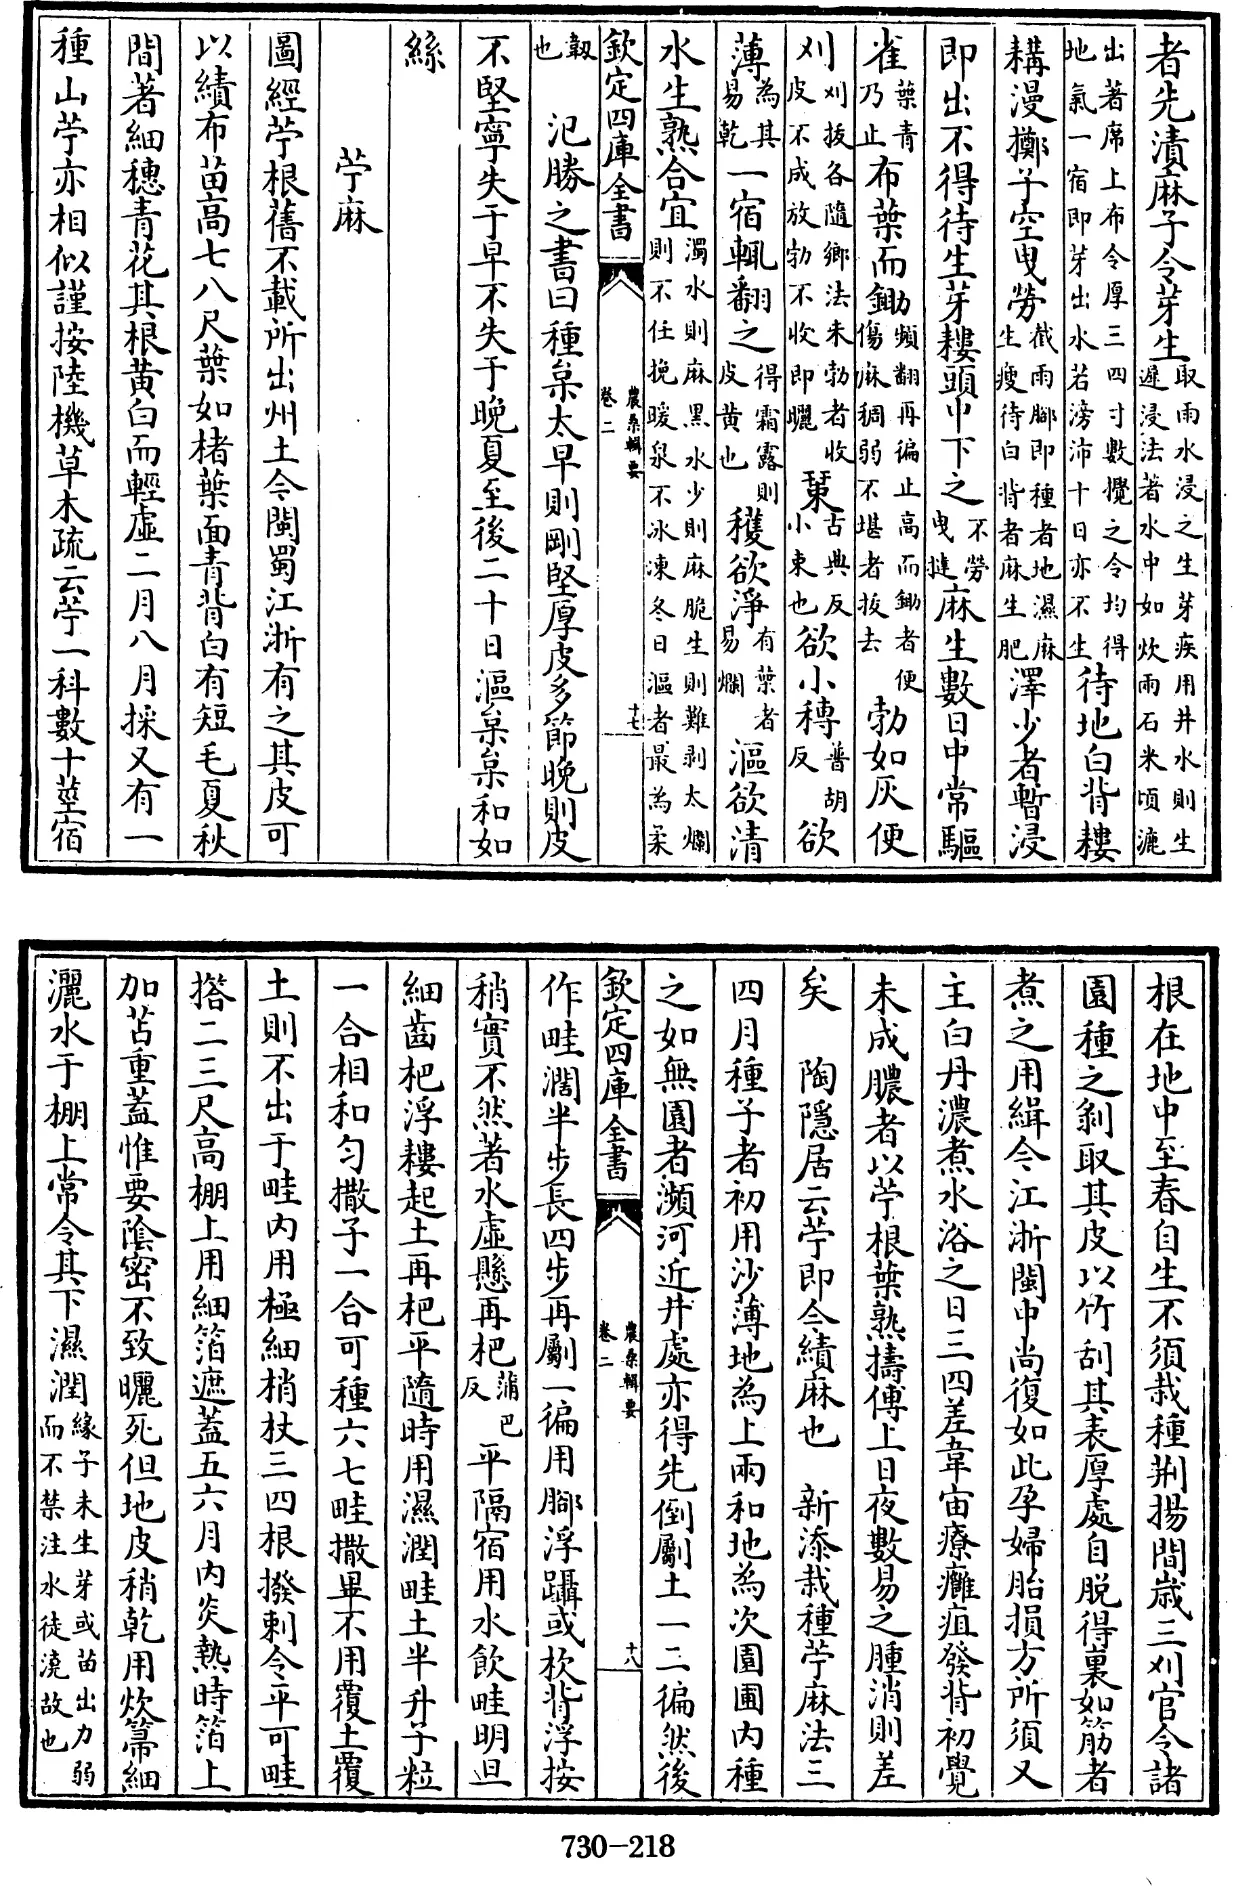 者先漬麻子令芽生取雨水浸之生芽疾用井水則生遲浸法著水中如炊兩石米頃漉
出著席上布令厚三四寸數攪之令均得地氣一宿即芽出水若滂沛十日亦不生待地白背耬
耩漫擲子空曳勞截雨腳即種者地濕麻生瘦待白背者麻生肥澤少者暫浸
即出不得待生芽耬頭中下之不勞曳撻麻生數日中常驅
雀葉青乃止布葉而鋤頻翻再徧止高而鋤者便傷麻稠弱不堪者拔去勃如灰便
刈刈拔各隨鄉法未勃者收皮不成放勃不收即曬䅌古典反小束也欲小䅭普胡反欲
薄為其易乾一宿輒翻之得霜露則皮黃也穫欲淨有葉者易爛漚欲清
水生熟合宜濁水則麻黑水少則麻脆生則難剥太爛則不任挽暖泉不冰凍冬日漚者最為柔
欽定四庫全書 農桑輯要 卷二 十七
韌也 氾勝之書曰種枲太早則剛堅厚皮多節晚則皮
不堅寧失于早不失于晚夏至後二十日漚枲枲和如
絲
苧麻
圖經苧根舊不載所出州土今閩蜀江浙有之其皮可
以績布苗高七八尺葉如楮葉面青背白有短毛夏秋
間著細穗青花其根黃白而輕虛二月八月採又有一
種山苧亦相似謹按陸機草木疏云苧一科數十莖宿
根在地中至春自生不須栽種荆揚間歲三刈官令諸
園種之剝取其皮以竹刮其表厚處自脱得裏如筋者
煮之用緝今江浙閩中尚復如此孕婦胎損方所須又
主白丹濃煮水浴之日三四差韋宙療癰疽發背初覺
未成膿者以苧根葉熟擣傅上日夜數易之腫消則差
矣 陶隱居云苧即今績麻也 新添栽種苧麻法三
四月種子者初用沙薄地為上兩和地為次園圃内種
之如無園者瀕河近井處亦得先倒劚土一二徧然後
欽定四庫全書 農桑輯要 卷二 十八
作畦濶半步長四步再劚一徧用脚浮躡或杴背浮按
稍實不然著水虛懸再杷蒲巴反平隔宿用水飲畦明旦
細齒杷浮耬起土再杷平隨時用濕潤畦土半升子粒
一合相和匀撒子一合可種六七畦撒畢不用覆土覆
土則不出于畦内用極細梢杖三四根撥刺令平可畦
搭二三尺高棚上用細箔遮蓋五六月内炎熱時箔上
加苫重蓋惟要陰密不致曬死但地皮稍乾用炊箒細
灑水于棚上常令其下濕潤緣子未生芽或苗出力弱而不禁注水徒澆故也
730-218